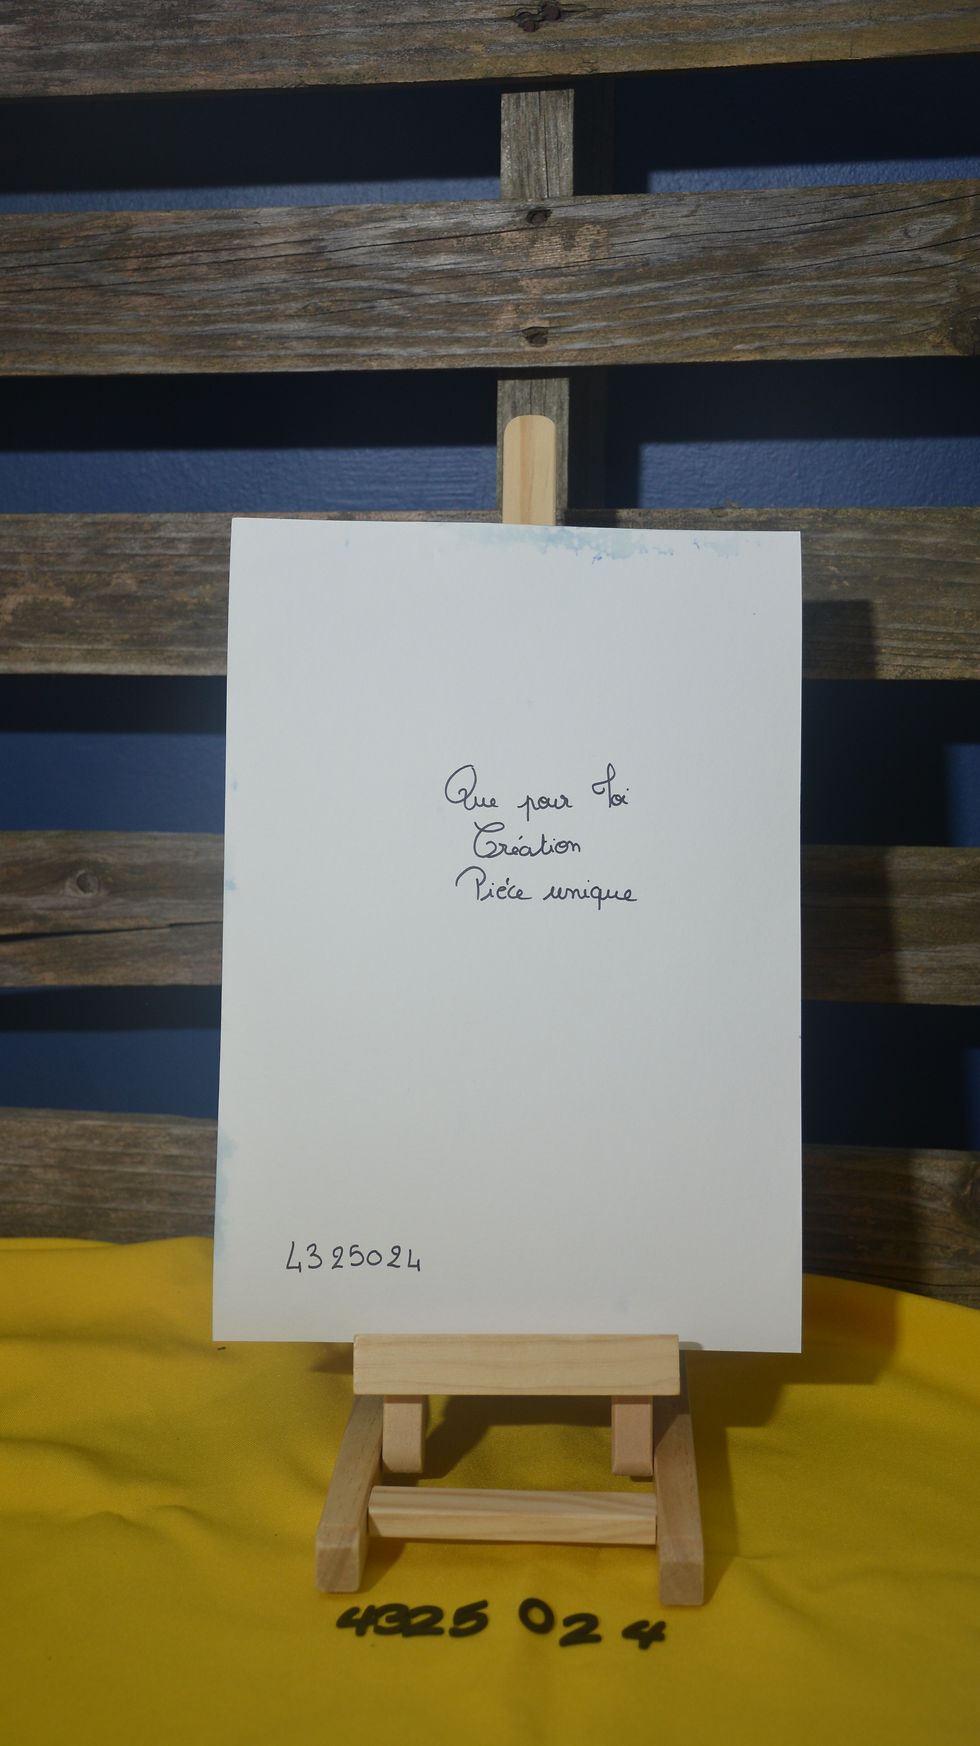 Que pour Toi
Création
Piéce unique
4325024
4325 024